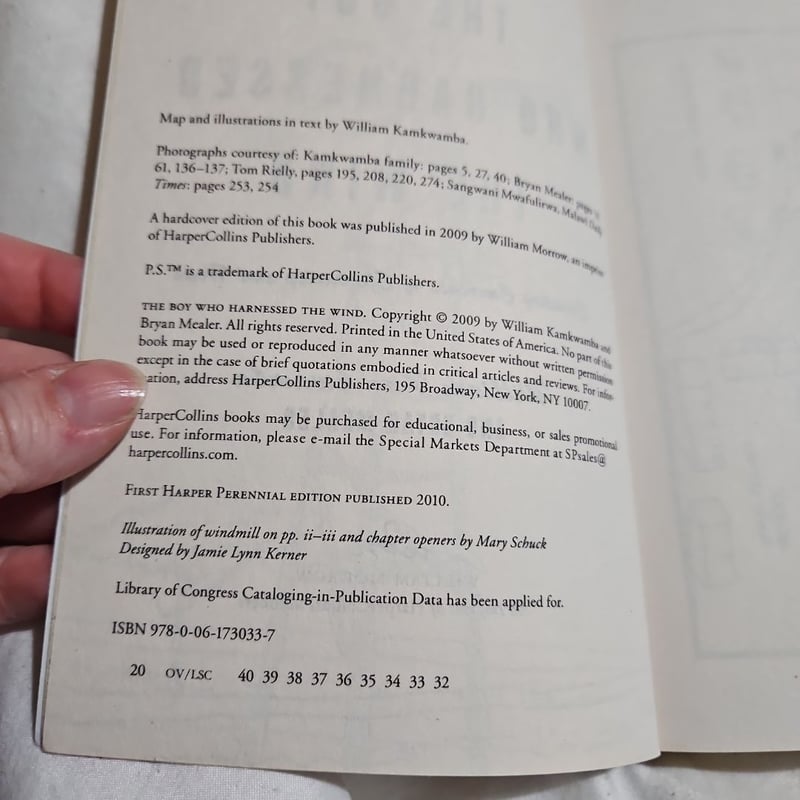 Map and illustrations in text by William Kamkwamba.
Photographs courtesy of: Kamkwamba family: pages 5, 27, 40; Bryan Mealer: pages
61, 136–137; Tom Rielly, pages 195, 208, 220, 274; Sangwani Mwafulirwa, Malawi Daily
Times: pages 253, 254
A hardcover edition of this book was published in 2009 by William Morrow, an imprint
of HarperCollins Publishers.
P.S.™ is a trademark of HarperCollins Publishers.
THE BOY WHO HARNESSED THE WIND. Copyright © 2009 by William Kamkwamba and
Bryan Mealer. All rights reserved. Printed in the United States of America. No part of this
book may be used or reproduced in any manner whatsoever without written permission
except in the case of brief quotations embodied in critical articles and reviews. For infor-
mation, address HarperCollins Publishers, 195 Broadway, New York, NY 10007.
HarperCollins books may be purchased for educational, business, or sales promotional
use. For information, please e-mail the Special Markets Department at SPsales@
harpercollins.com.
FIRST HARPER PERENNIAL EDITION PUBLISHED 2010.
Illustration of windmill on pp. ii–iii and chapter openers by Mary Schuck
Designed by Jamie Lynn Kerner
Library of Congress Cataloging-in-Publication Data has been applied for.
ISBN 978-0-06-173033-7
20 OV/LSC 40 39 38 37 36 35 34 33 32